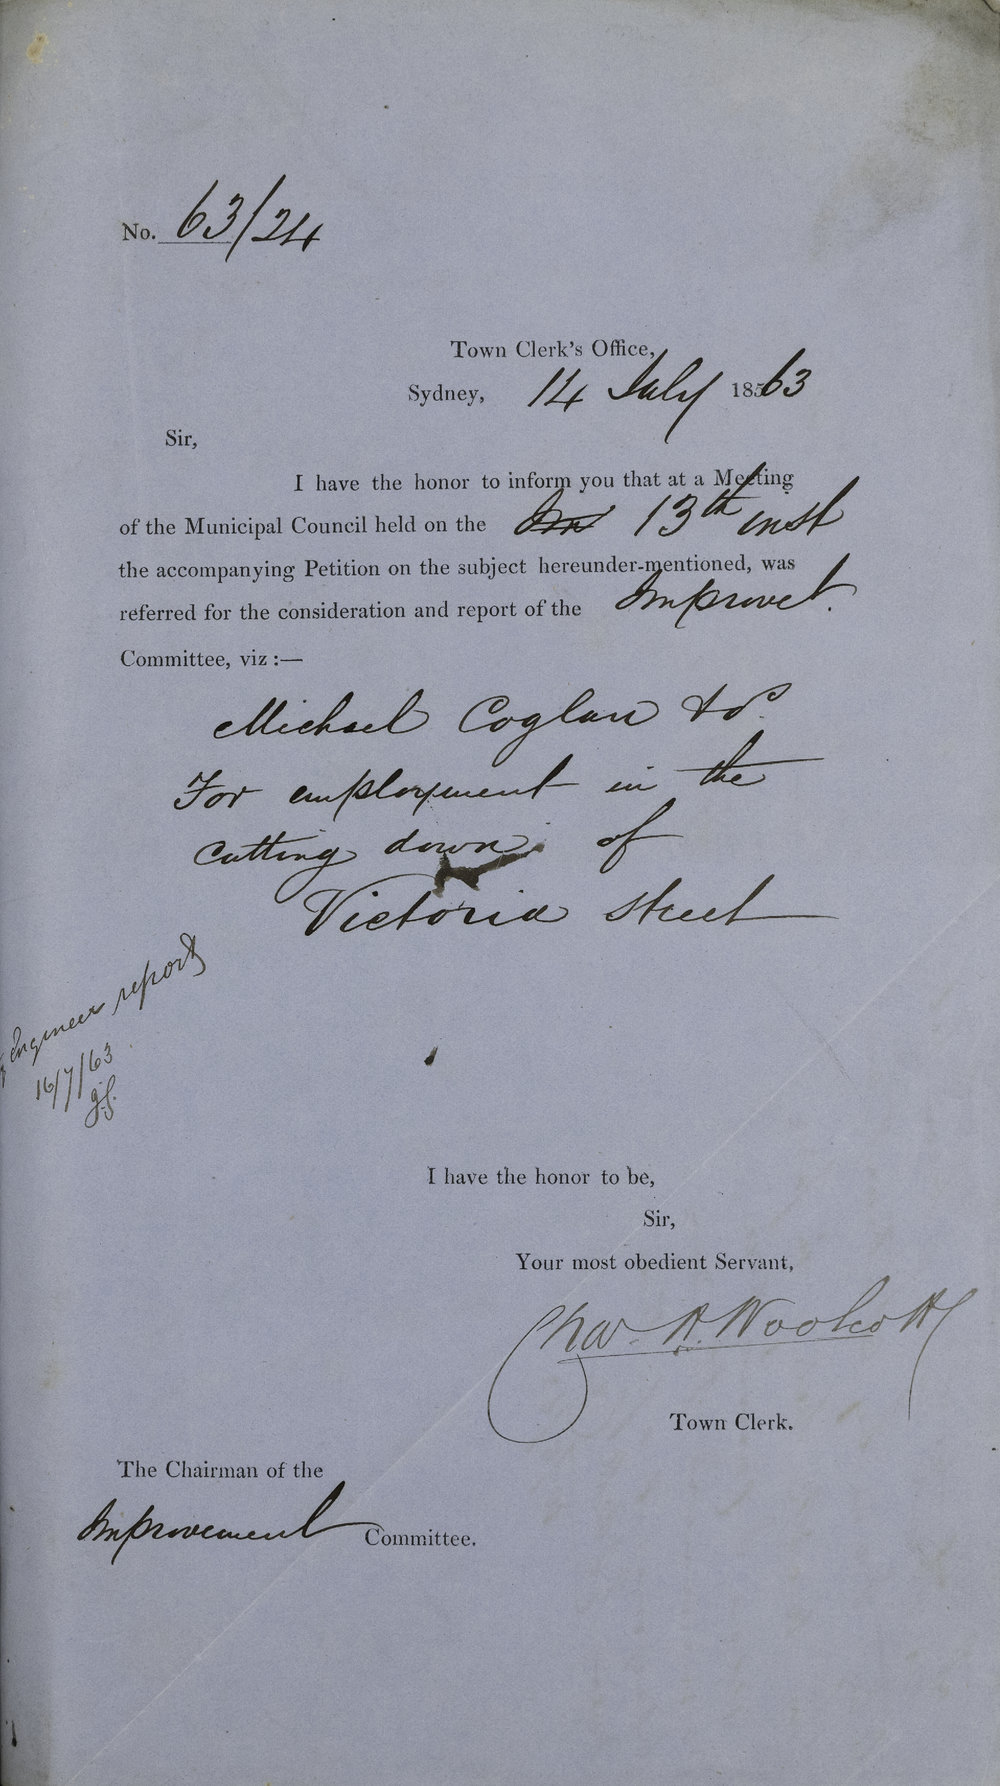 No. 63/24
Town Clerk's Office,
Sydney, 14 July 1863
Sir,
I have the honor to inform you that at a Meeting
of the Municipal Council held on the 13th inst
the accompanying Petition on the subject hereunder-mentioned, was
referred for the consideration and report of the Improvet.
Committee, viz :—
Michael Coglan &c.
For employment in the
cutting down of
Victoria Street
Engineer report
16/7/63
I have the honor to be,
Sir,
Your most obedient Servant,
Chas. H. Woolcott
Town Clerk.
The Chairman of the
Improvement Committee.